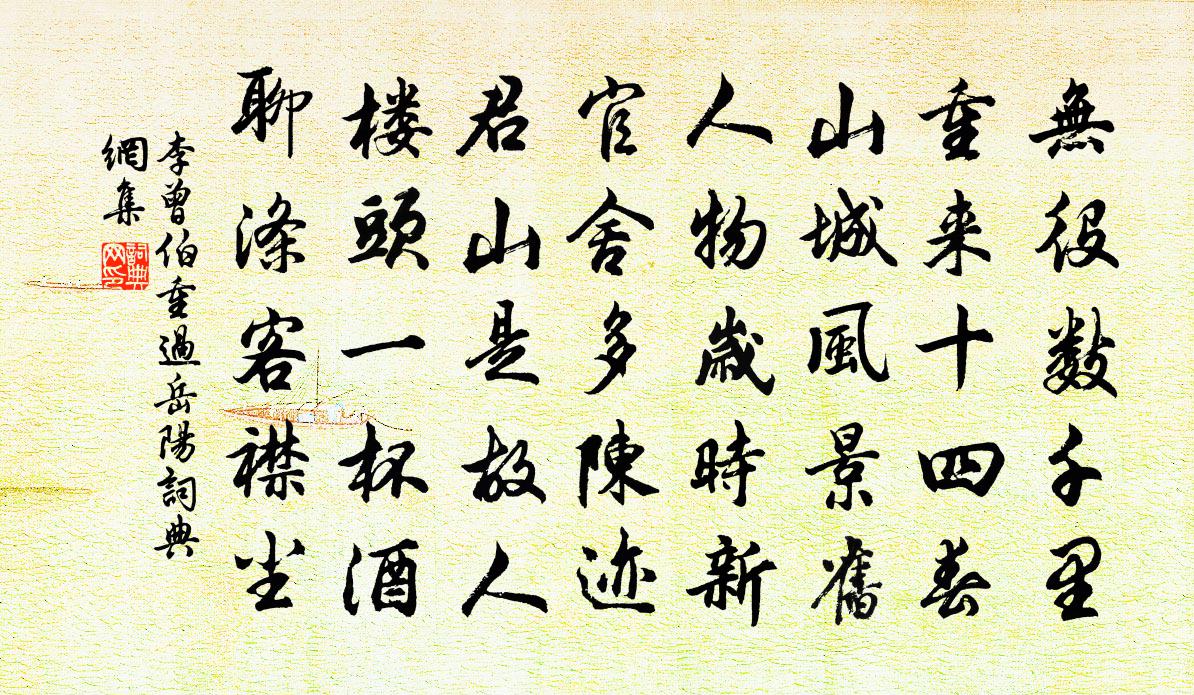 無役数千里
重来十四春
山城風景舊
人物歲時新
官舍多陳迹
君山是故人
楼頭一杯酒
聊滌客襟尘
李曾伯重過岳陽詞典
網集
詞典網印